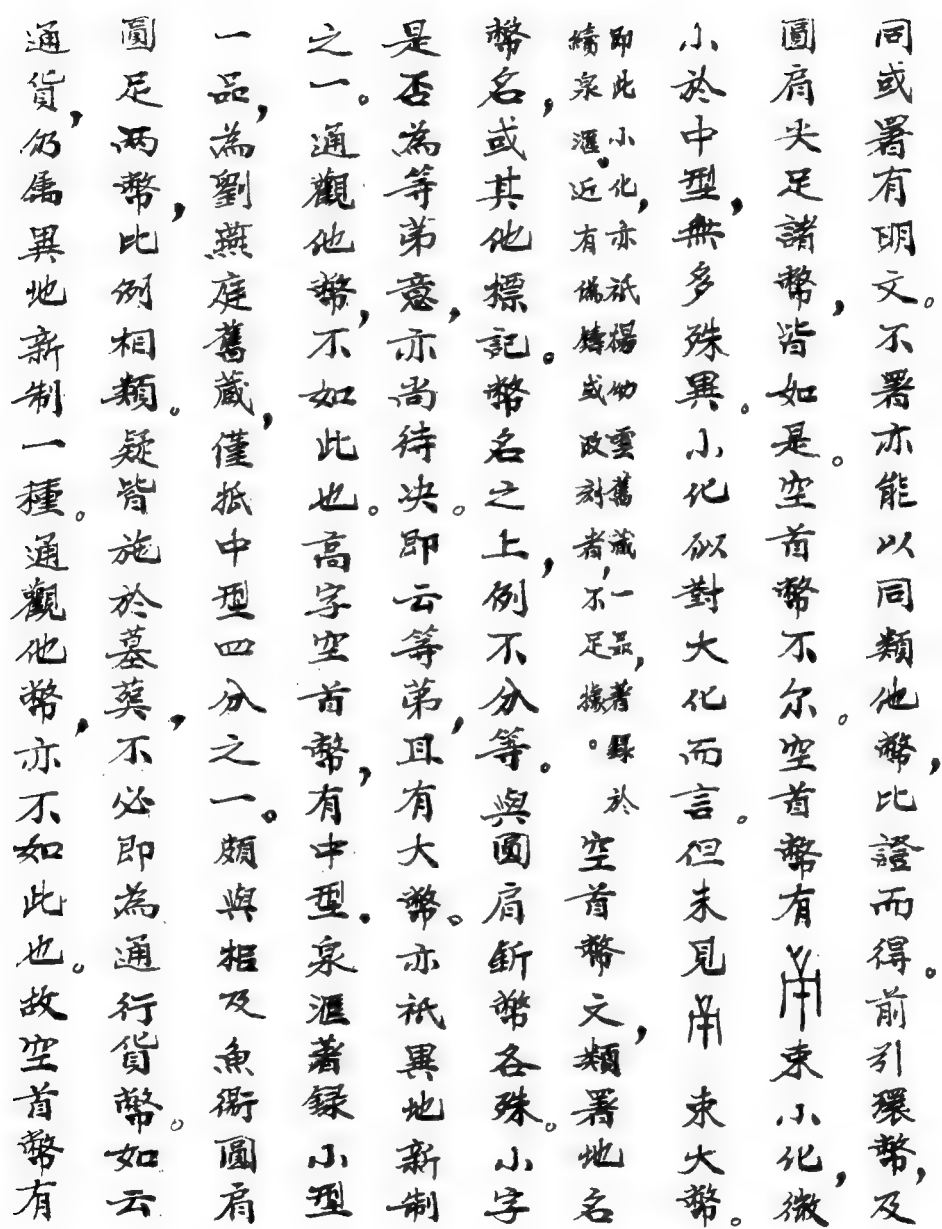 同或署有明文。不署亦能以同類他幣，比證而得。前引環幣，及
圓肩尖足諸幣，皆如是。空首幣不尔。空首幣有束小化，微
小於中型，無多殊異。小化似對大化而言。但未見束大幣。
即此小化，亦祇楊幼雲舊藏一品，著錄於
續泉滙。近有偽鑄或改刻者，不足據。
空首幣文，類署地名
幣名，或其他標記。幣名之上，例不分等。與圓肩釿幣各殊。小字
是否為等弟意，亦尚待決。即云等弟，且有大幣。亦祇異地新制
之一。通觀他幣，不如此也。高字空首幣，有中型。泉滙著錄小型
一品，為劉燕庭舊藏，僅抵中型四分之一。頗與梠及魚衜圓肩
圓足兩幣，比例相類。疑皆施於墓葬，不必即為通行貨幣。如云
通貨，仍屬異地新制一種。通觀他幣，亦不如此也。故空首幣有